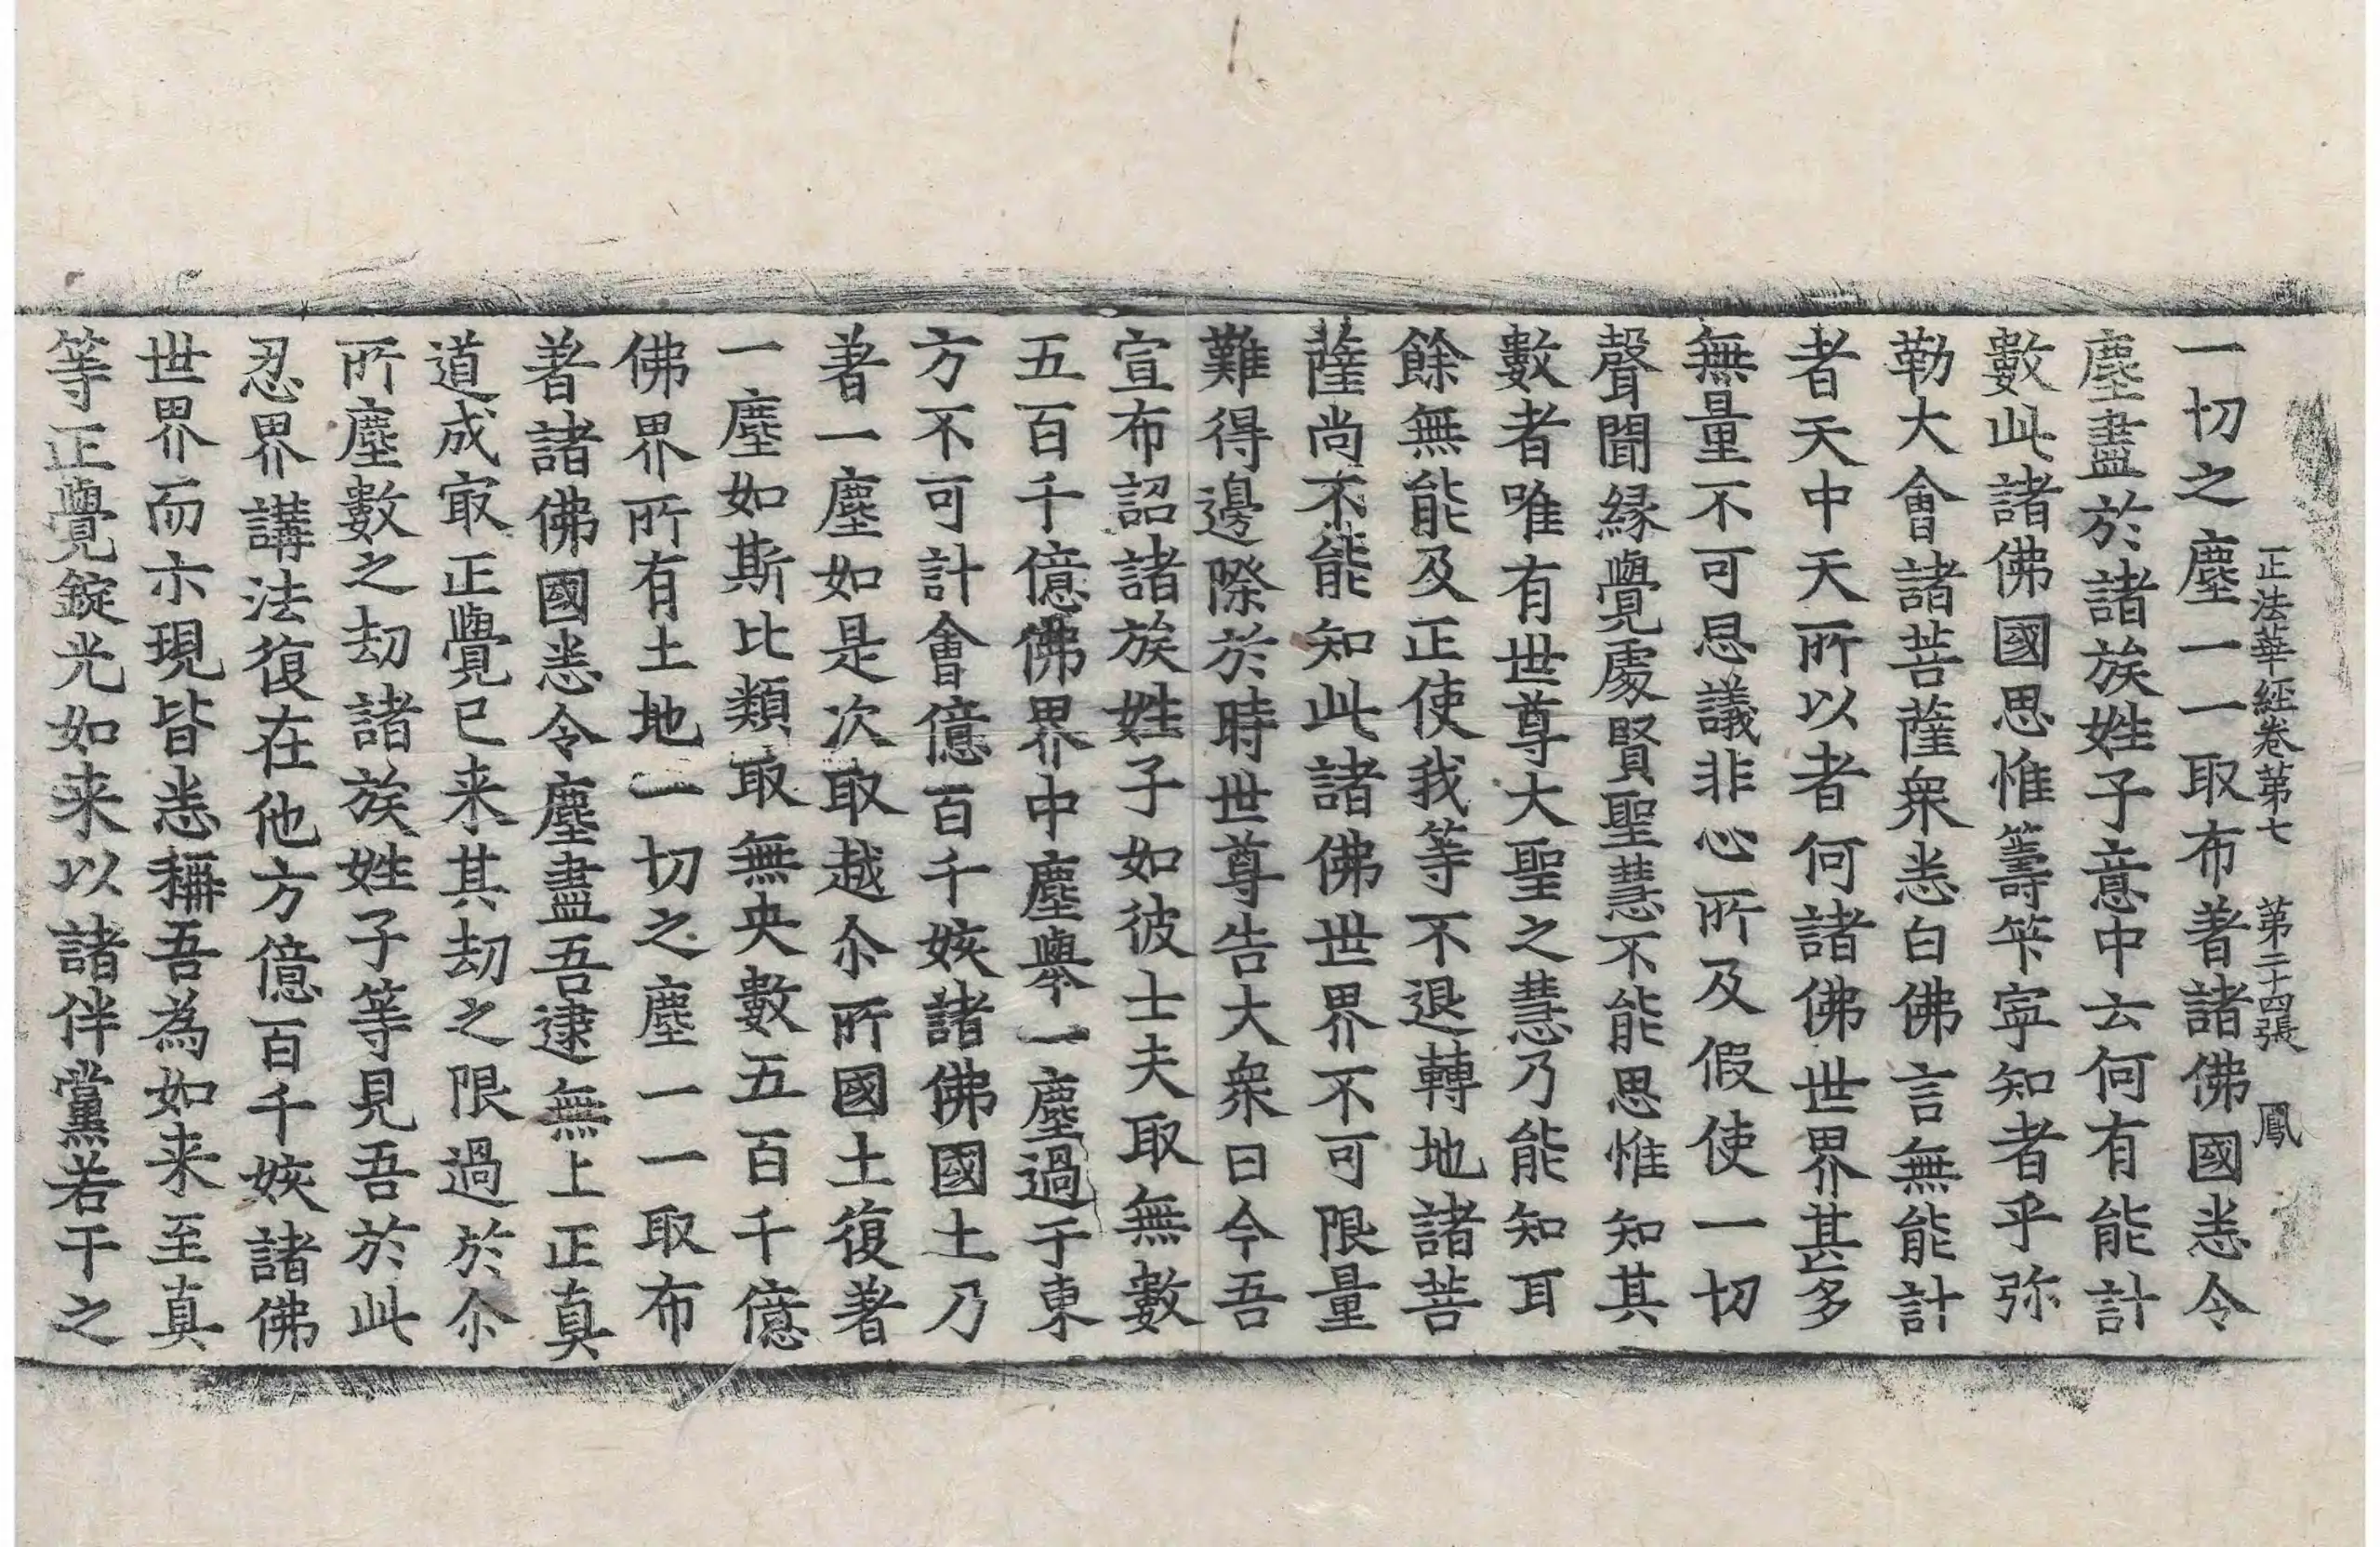 正法華經卷第七 第二十四張 鳳
一切之塵一一取布著諸佛國悉令
塵盡於諸族姓子意中云何有能計
數此諸佛國思惟籌筭寧知者乎弥
勒大會諸菩薩衆悉白佛言無能計
者天中天所以者何諸佛世界甚多
無量不可思議非心所及假使一切
聲聞縁覺處賢聖慧不能思惟知其
數者唯有世尊大聖之慧乃能知耳
餘無能及正使我等不退轉地諸菩
薩尚不能知此諸佛世界不可限量
難得邊際於時世尊告大衆曰今吾
宣布詔諸族姓子如彼士夫取無數
五百千億佛界中塵舉一塵過于東
方不可計會億百千姟諸佛國土乃
著一塵如是次取越尒所國土復著
一塵如斯比類取無央數五百千億
佛界所有土地一切之塵一一取布
著諸佛國悉令塵盡吾逮無上正真
道成㝡正覺已来其劫之限過於尒
所塵數之劫諸族姓子等見吾於此
忍界講法復在他方億百千姟諸佛
世界而亦現皆悉稱吾為如来至真
等正覺錠光如来以諸伴黨若干之